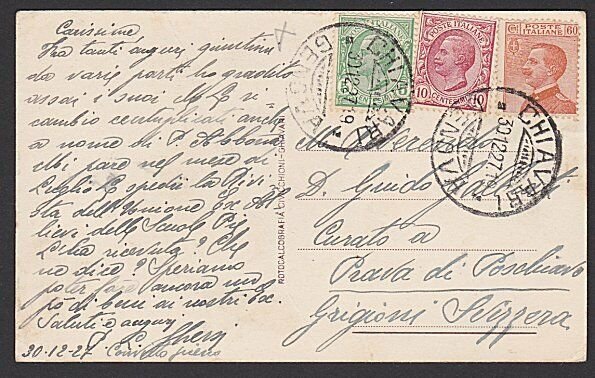 Carissimo
Fra tanti auguri giuntimi
da varie parti ho gradito
assai i suoi che E ri-
cambio centuplicati anche
a nome di P. Abbona
chi pare nel mese di
Luglio E spedii la Rivi-
sta dell'Unione Ex Al-
lievi delle Scuole Pie
L'ha ricevuta? Che
ne dice? Speriamo
poter fare ancora un
pò di bene ai nostri Ex.
Saluti e auguri
P. L.
30-12-27
ROTOCALCOGRAFIA CIVICCHIONI-CHIAVARI
POSTE ITALIANE
10 CENTESIMI 10
POSTE ITALIANE
60
CHIAVARI
GENOVA
CHIAVARI
30.12.27
GENOVA
D. Guido
Curato a
Prava di Poschiavo
Grigioni Svizzera